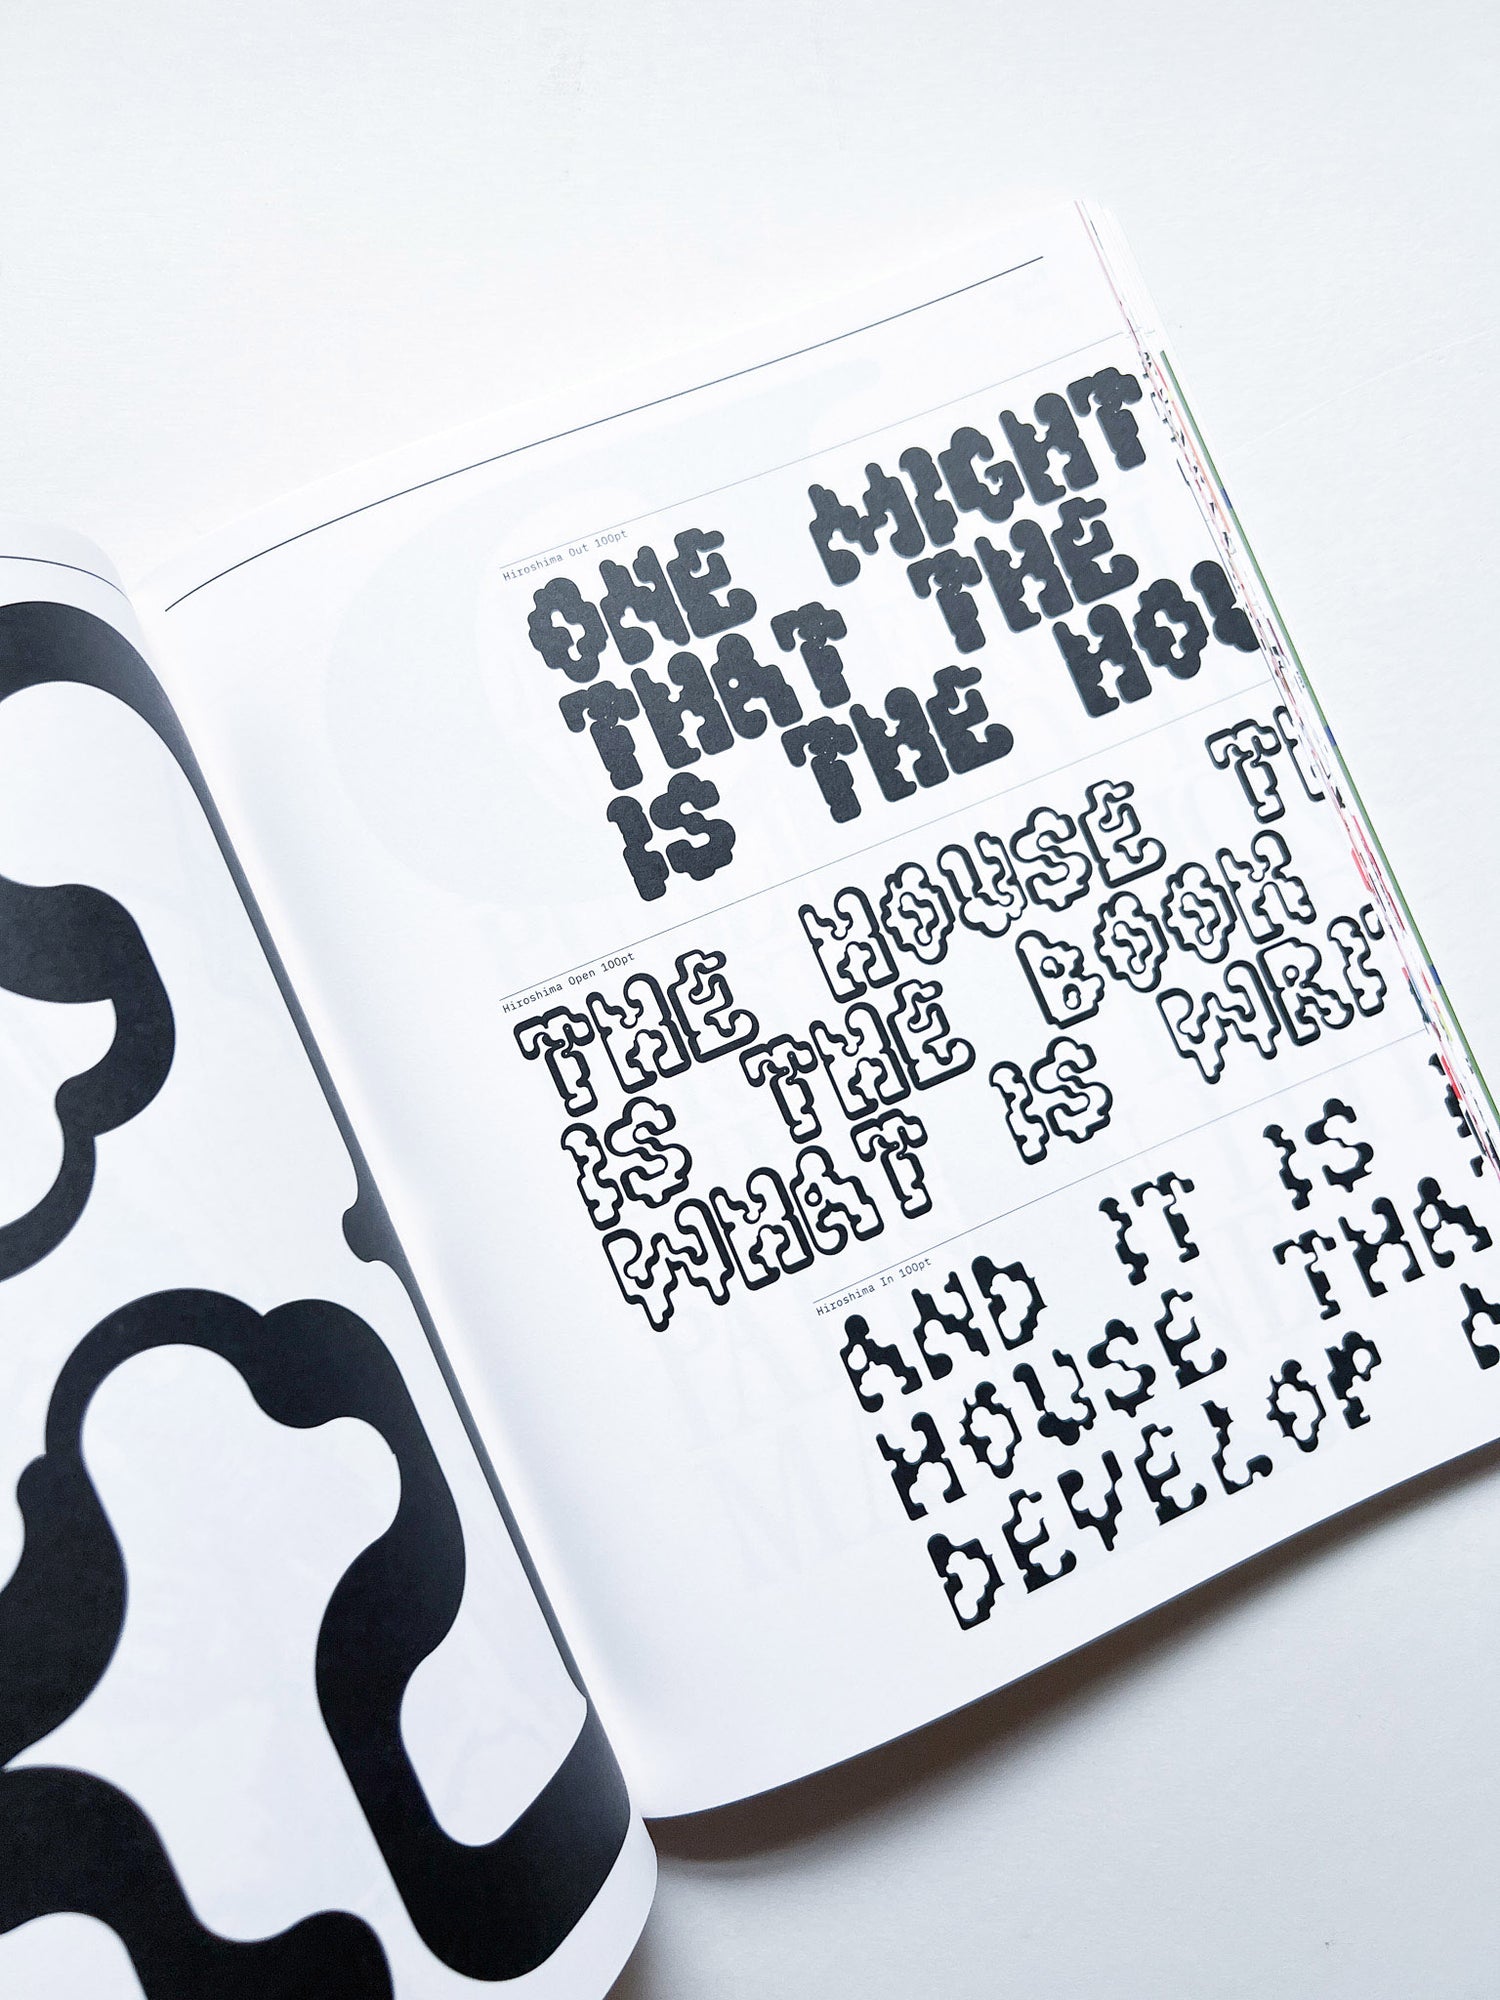 Hiroshima Out 100pt
ONE MIGHT
THAT THE
IS THE HOU
Hiroshima Open 100pt
THE HOUSE TH
IS THE BOOK
WHAT IS WRIT
Hiroshima In 100pt
AND IT IS
HOUSE THAT
DEVELOP